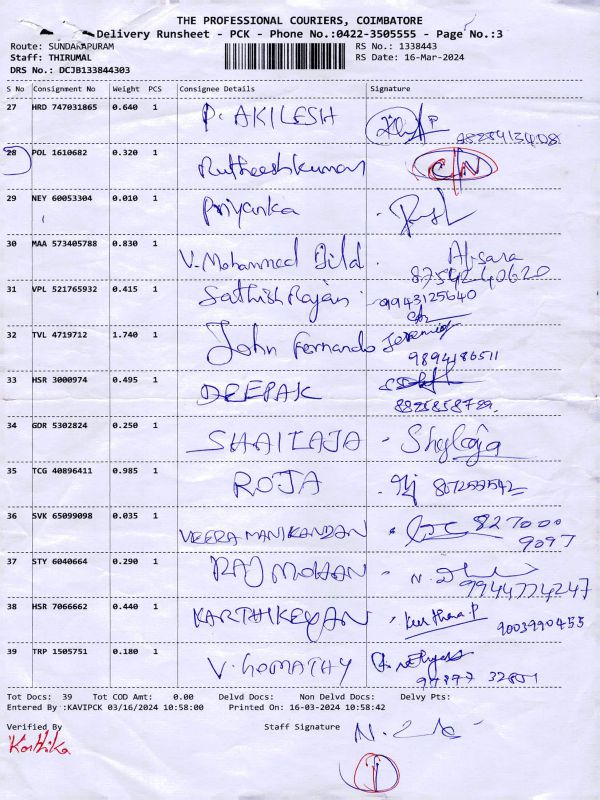 THE PROFESSIONAL COURIERS, COIMBATORE
Delivery Runsheet - PCK - Phone No.:0422-3505555 - Page No.:3
Route: SUNDARAPURAM RS No.: 1338443
Staff: THIRUMAL RS Date: 16-Mar-2024
DRS No.: DCJB133844303
S No Consignment No Weight PCS Consignee Details Signature
27 HRD 747031865 0.640 1 P. AKILESH
28 POL 1610682 0.320 1 Rutheeshkumar
29 NEY 60053304 0.010 1 Priyanka
30 MAA 573405788 0.830 1 V. Mohammed
8754240620
31 VPL 521765932 0.415 1 Sathish Rajan 9943125640
32 TVL 4719712 1.740 1 John Fernando Jeremia
9894186511
33 HSR 3000974 0.495 1 DEEPAK
34 GDR 5302824 0.250 1 SHAILAJA
35 TCG 40896411 0.985 1 ROJA
36 SVK 65099098 0.035 1 VEERA MANIKANDAN 827000
9097
37 STY 6040664 0.290 1 RAJ MOHAN
9944774247
38 HSR 7066662 0.440 1 KARTHIKEYAN
9003990455
39 TRP 1505751 0.180 1 V. GOMATHY
Tot Docs: 39 Tot COD Amt: 0.00 Delvd Docs: Non Delvd Docs: Delvy Pts:
Entered By :KAVIPCK 03/16/2024 10:58:00 Printed On: 16-03-2024 10:58:42
Verified By Staff Signature
Karthika